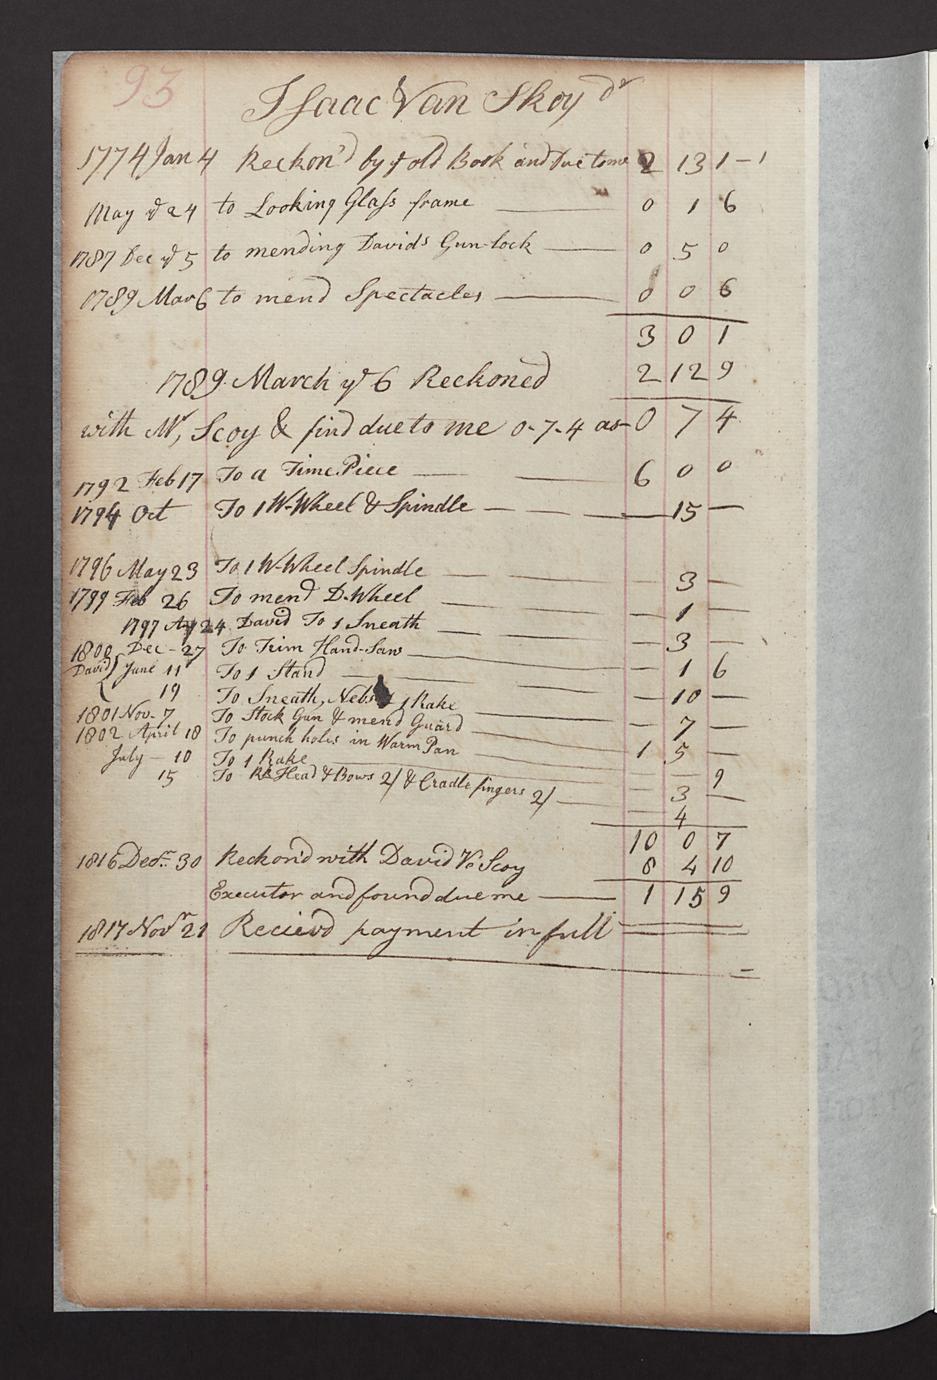 93
Isaac Van Skoy Dr
1774 Jan 4 Reckon'd by ye old Book and Due to me 2 13 1-1
May ye 24 to Looking Glass frame 0 1 6
1787 Dec ye 5 to mending Davids Gun-lock 0 5 0
1789 Mar 6 to mend Spectacles 0 0 6
3 0 1
1789 March ye 6 Reckoned 2 12 9
with Mr, Scoy & find due to me 0-7-4 as 0 7 4
1792 Feb 17 To a Time Piece 6 0 0
1794 Oct To 1 W-Wheel & Spindle — 15 —
1796 May 23 To 1 W-Wheel Spindle — 3 —
1799 Feb 26 To mend D-Wheel — 1 —
1797 24 David To 1 Sneath — 3 —
1800 Dec - 27 To Trim Hand-Saw — 1 6
David June 11 To 1 Stand — 10 —
19 To Sneath, Nebs 1 Rake — 7 —
1801 Nov- 7 To Stock Gun & mend Guard 1 5 —
1802 April 18 To punch holes in Warm Pan — — 9
July — 10 To 1 Rake — 3 —
15 To Re Head & Bows 2/ & Cradle fingers 2/ — 4
10 0 7
1816 Decr 30 Reckon'd with David Vn Scoy 8 4 10
Executor and found due me 1 15 9
1817 Novr 21 Recievd payment in full